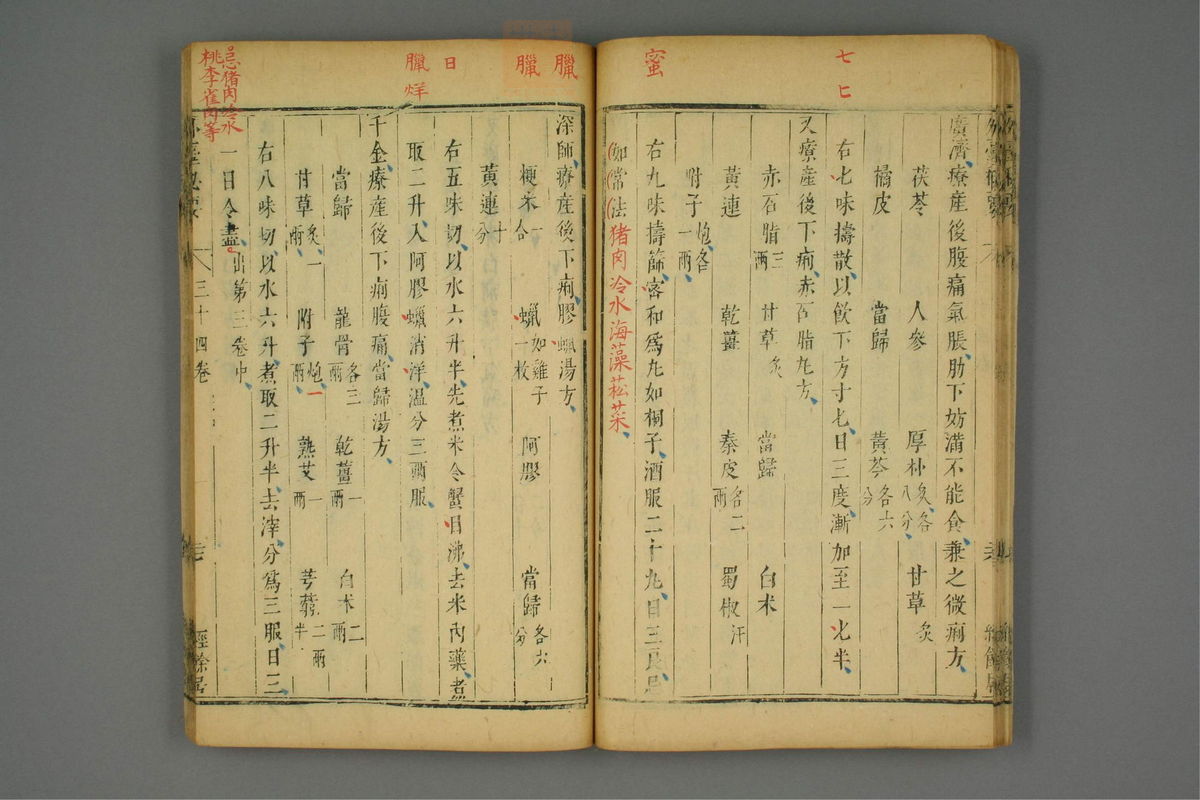 七 匕
蜜
廣濟療産後腹痛氣脹肋下妨滿不能食兼之微痢方
茯苓 人參 厚朴炙各八分 甘草炙
橘皮 當歸 黃芩各六分
右七味擣散以飲下方寸七日三度漸加至一七半
又療産後下痢赤石脂丸方
赤石脂三兩 甘草炙 當歸 白朮
黃連 乾薑 秦皮各二兩 蜀椒汗
附子炮各一兩
右九味擣篩密和為丸如桐子酒服二十丸日三良忌
如常法猪肉冷水海藻菘菜
臘
臘
日
臘烊
深師療産後下痢膠蠟湯方
粳米一合 蠟如雞子一枚 阿膠 當歸各六分
黃連十分
右五味切以水六升半先煮米令蟹目沸去米內藥煮
取二升入阿膠蠟消洋溫分三兩服
千金療産後下痢腹痛當歸湯方
當歸 龍骨各三兩 乾薑一兩 白朮二兩
甘草炙一兩 附子炮一兩 熟艾一兩 芎藭二兩半
右八味切以水六升煮取二升半去滓分為三服日三
一日令盡出第三卷中
忌猪肉冷水
桃李雀肉等
三十四卷
經餘居